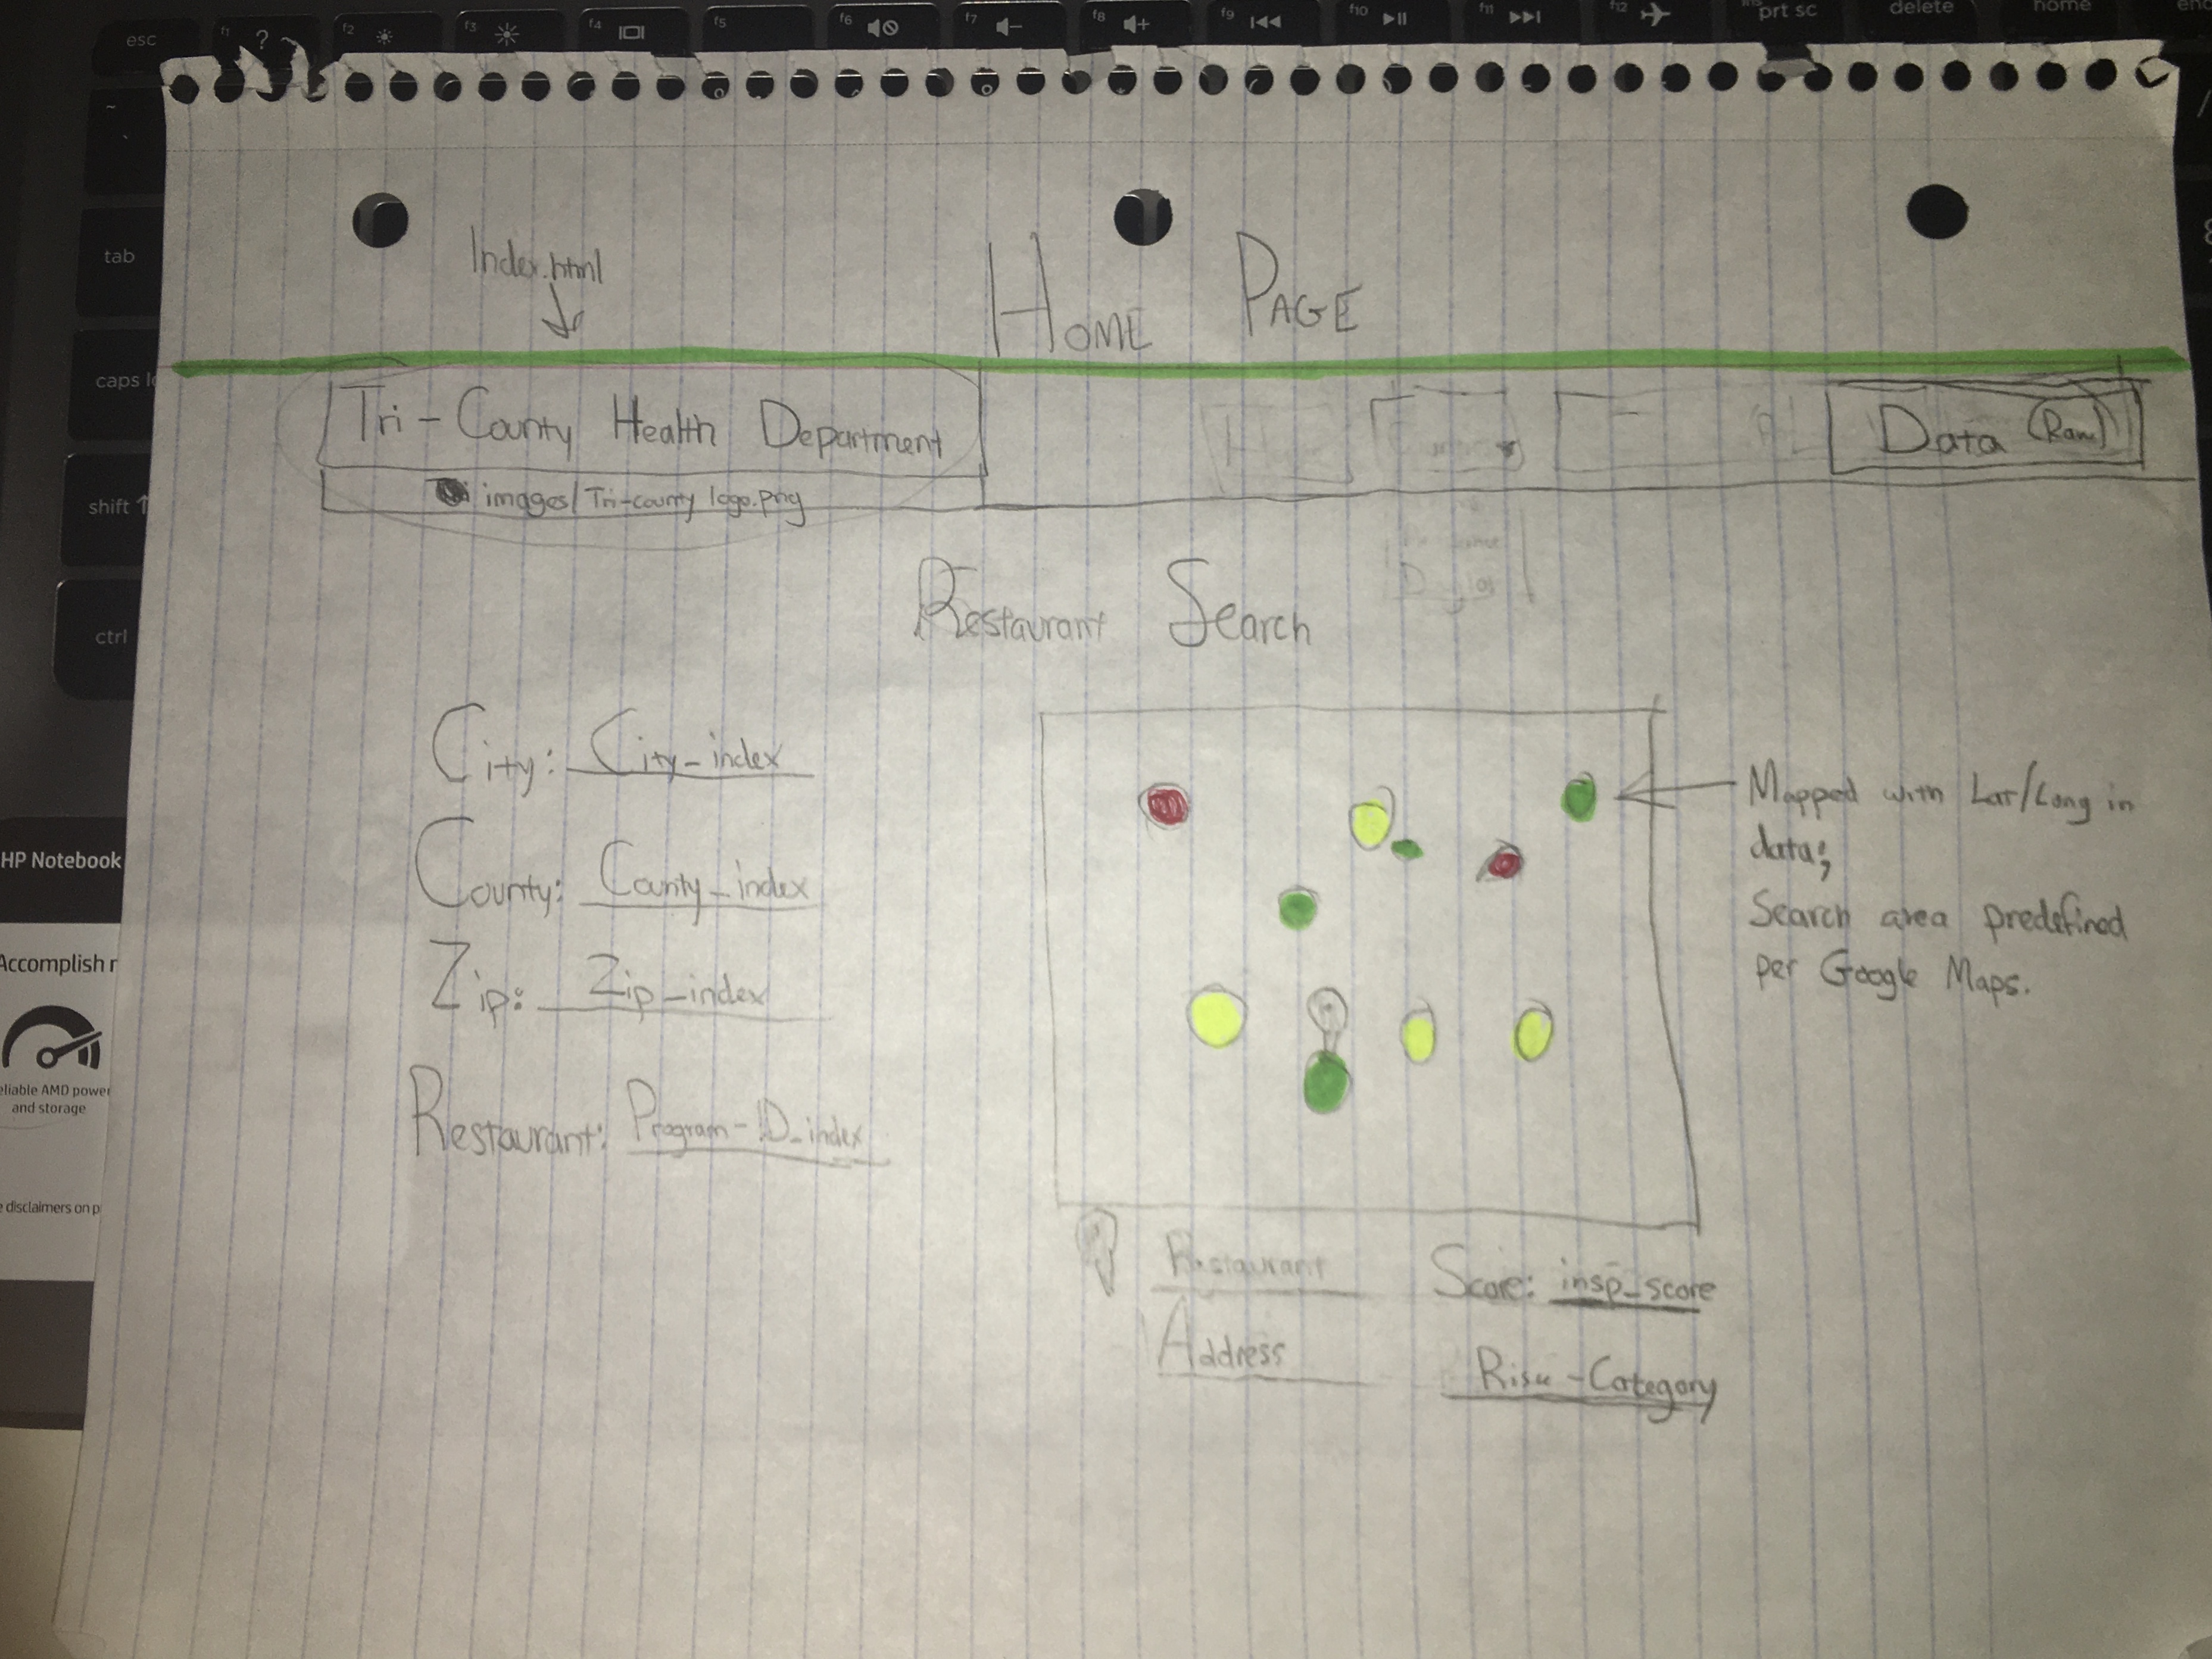 esc f1 ? f2 f3 f4 f5 f6 f7 f8 f9 f10 f11 f12 prt sc delete home
tab
caps
shift
ctrl
HP Notebook
Accomplish
AMD
and storage
disclaimers on
Index.html
HOME PAGE
Tri-County Health Department
Data (Raw)
images/Tri-county logo.png
Restaurant Search
City: City_index
County: County_index
Zip: Zip_index
Restaurant: Program-ID_index
Mapped with Lat/Long in
data;
Search area predefined
per Google Maps.
Restaurant Score: insp_score
Address Risk-Category